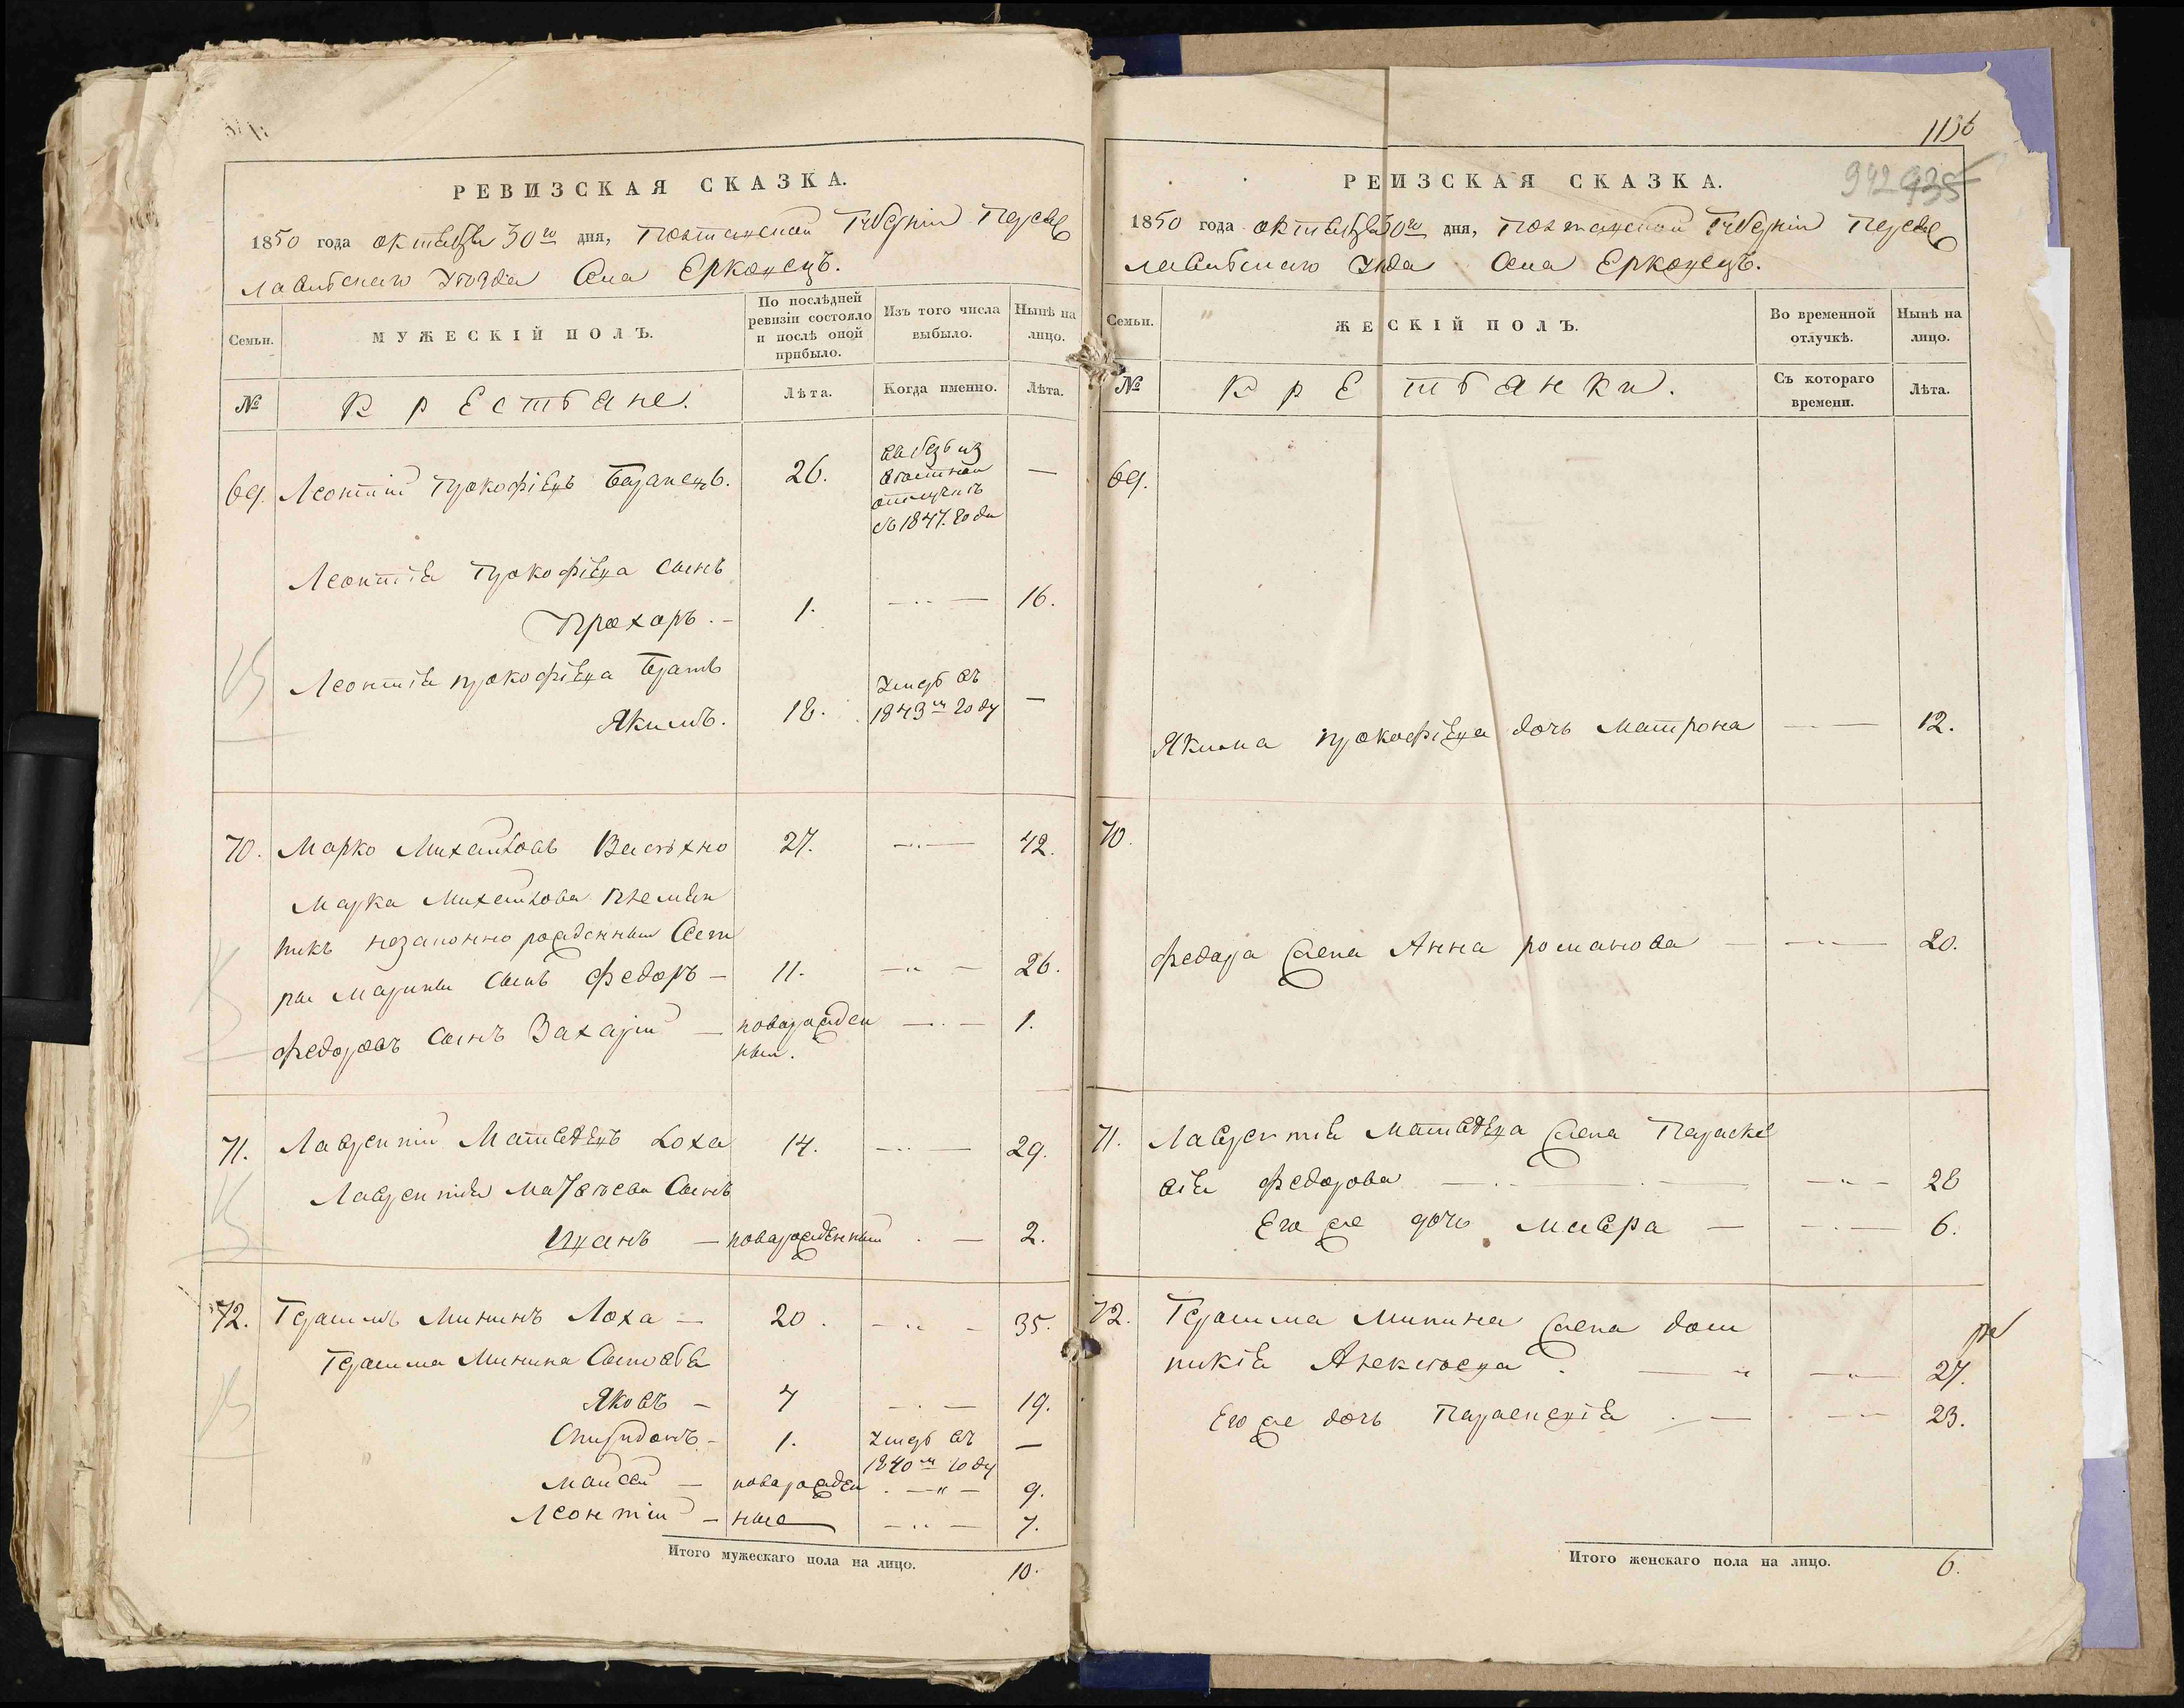 РЕВИЗСКАЯ СКАЗКА.
1850 года октября 30го дня, Полтавской Губерніи Переяс
лавскаго Уѣзда Села Ерковецъ.
Семьи.
МУЖЕСКІЙ ПОЛЪ.
По послѣдней ревизіи состояло и послѣ оной прибыло.
Изъ того числа выбыло.
Нынѣ на лицо.
№
Крестьяне.
Лѣта.
Когда именно.
Лѣта.
69. Леонтій Прокофіевъ 26. —
отлучкѣ
съ 1847. года
Леонтія Прокофіева сынъ
Прохоръ. — 1. — 16.
Леонтія Прокофіева братъ
Якимъ. 18. умеръ въ 1843м году —
70. Марко Михайловъ 27. — 42.
Марка Михайлова племян
никъ незаконно рожденный Сест
ры Марины сынъ Федоръ — 11. — 26.
Федоровъ сынъ Захарій — новорожден
ный. — 1.
71. Лаврентій Матвѣевъ Лоха 14. — 29.
Лаврентія Матвѣева сынъ
Иванъ — новорожденный — 2.
72. Герасимъ Мининъ Лоха — 20. — 35.
Герасима Минина сыновья
Яковъ — 4 — 19.
Спиридонъ — 1. умеръ въ 1840м году —
Мойсей — новорожден — 9.
Леонтій — ные — 7.
Итого мужескаго пола на лицо. 10.
1156
942 935
РЕИЗСКАЯ СКАЗКА.
1850 года октября 30го дня, Полтавской Губерніи Переяс
лавскаго Уѣда Села Ерковецъ.
Семьи.
ЖЕСКІЙ ПОЛЪ.
Во временной отлучкѣ.
Нынѣ на лицо.
№
Кретьянки.
Съ котораго времени.
Лѣта.
69.
Якима Прокофіева дочь Матрона — 12.
70.
Федора жена Анна Романова — 20.
71. Лаврентія Матвѣева жена Параске
вія Федорова — 28
Его же дочь Мавра — 6.
72. Герасима Минина жена Дом
никія Алексѣева. — 27.
Его же дочь Параскевія — 23.
Итого женскаго пола на лицо. 6.